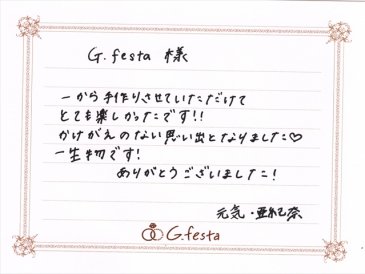 G.festa 様
一から手作りさせていただけて
とても楽しかったです!!
かけがえのない思い出となりました♡
一生物です!
ありがとうございました!
元気・亜紀奈
G.festa